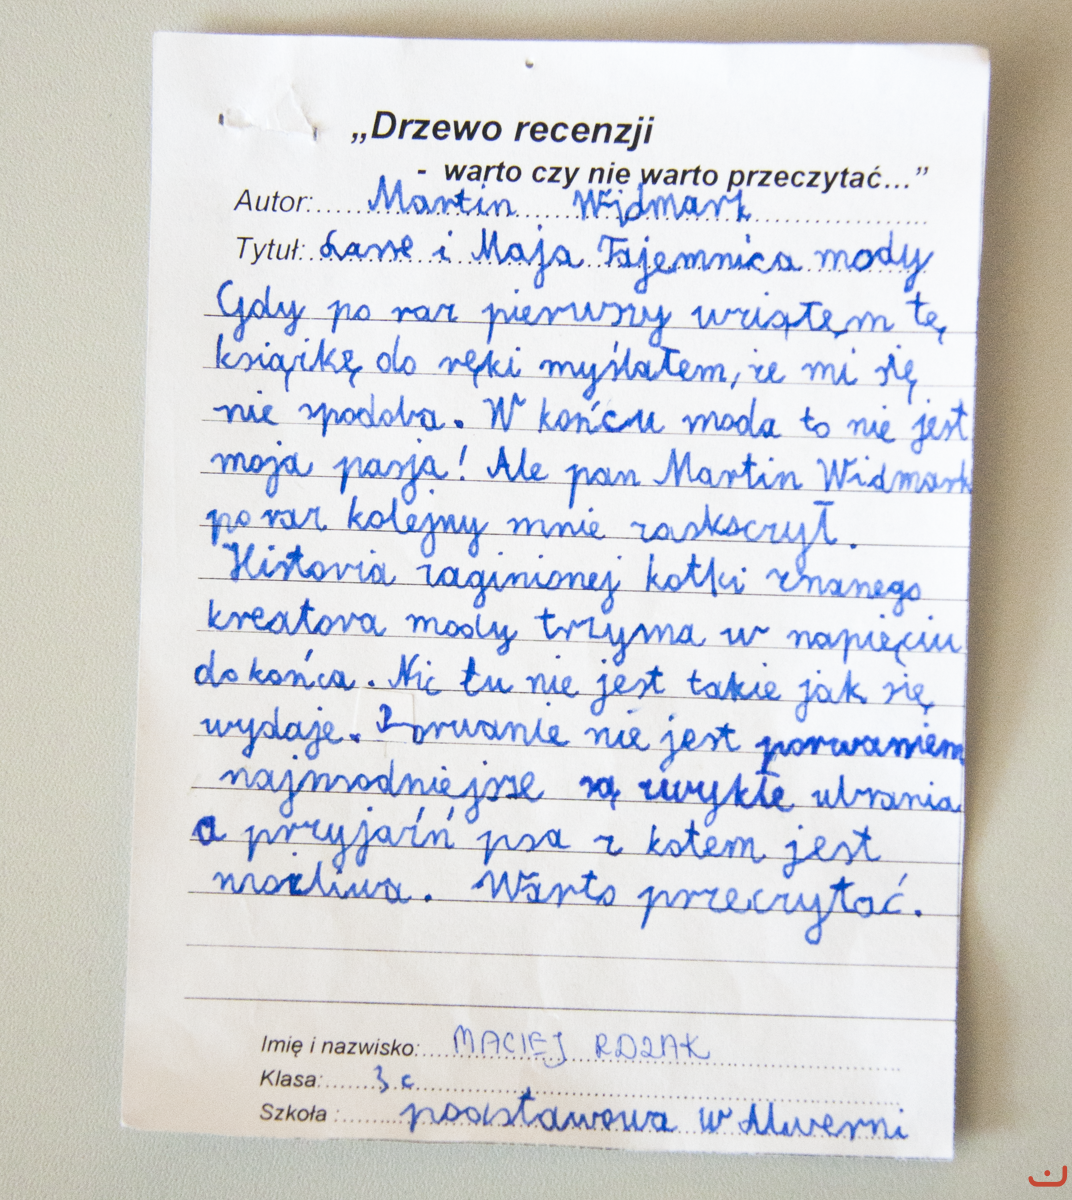 „Drzewo recenzji
- warto czy nie warto przeczytać...”
Autor: Martin Widmark
Tytuł: Lasse i Maja Tajemnica mody
Gdy po raz pierwszy wziąłęm tę
książkę do ręki myślałem, że mi się
nie spodoba. W końcu moda to nie jest
moja pasja! Ale pan Martin Widmark
po raz kolejny mnie zaskoczył.
Historia zaginionej kotki znanego
kreatora mody trzyma w napięciu
do końca. Nic tu nie jest takie jak się
wydaje. Porwanie nie jest porwaniem
najmodniejsze są zwykłe ubrania
a przyjaźń psa z kotem jest
możliwa. Warto przeczytać.
Imię i nazwisko: MACIEJ RDZAK
Klasa: 3 c
Szkoła : podstawowa w Alwerni